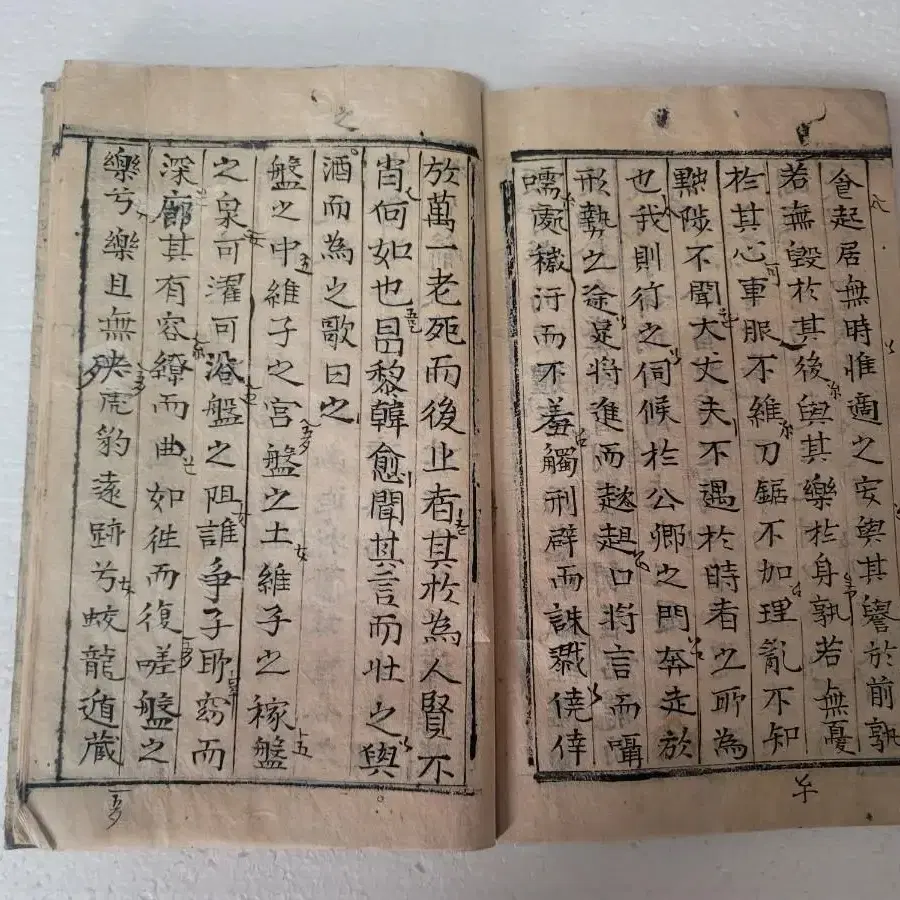 食起居無時惟適之安與其譽於前孰
若無毀於其後與其樂於身孰若無憂
於其心車服不維刀鋸不加理亂不知
黜陟不聞大丈夫不遇於時者之所為
也我則行之伺候於公卿之門奔走於
形勢之途足將進而趑趄口將言而囁
嚅處穢汙而不羞觸刑辟而誅戮僥倖
放萬一老死而後止者其於為人賢不
肖何如也昌黎韓愈聞其言而壯之與
酒而為之歌曰之
盤之中維子之宮盤之土維子之稼盤
之泉可濯可浴盤之阻誰爭子所窈而
深廊其有容繚而曲如往而復嗟盤之
樂兮樂且無殃虎豹遠跡兮蛟龍遁藏